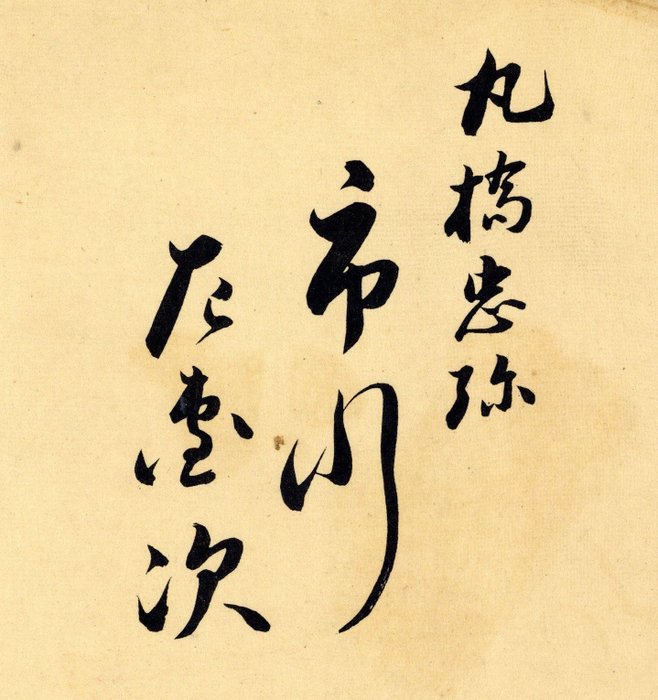 丸橋忠弥
市川
左團次